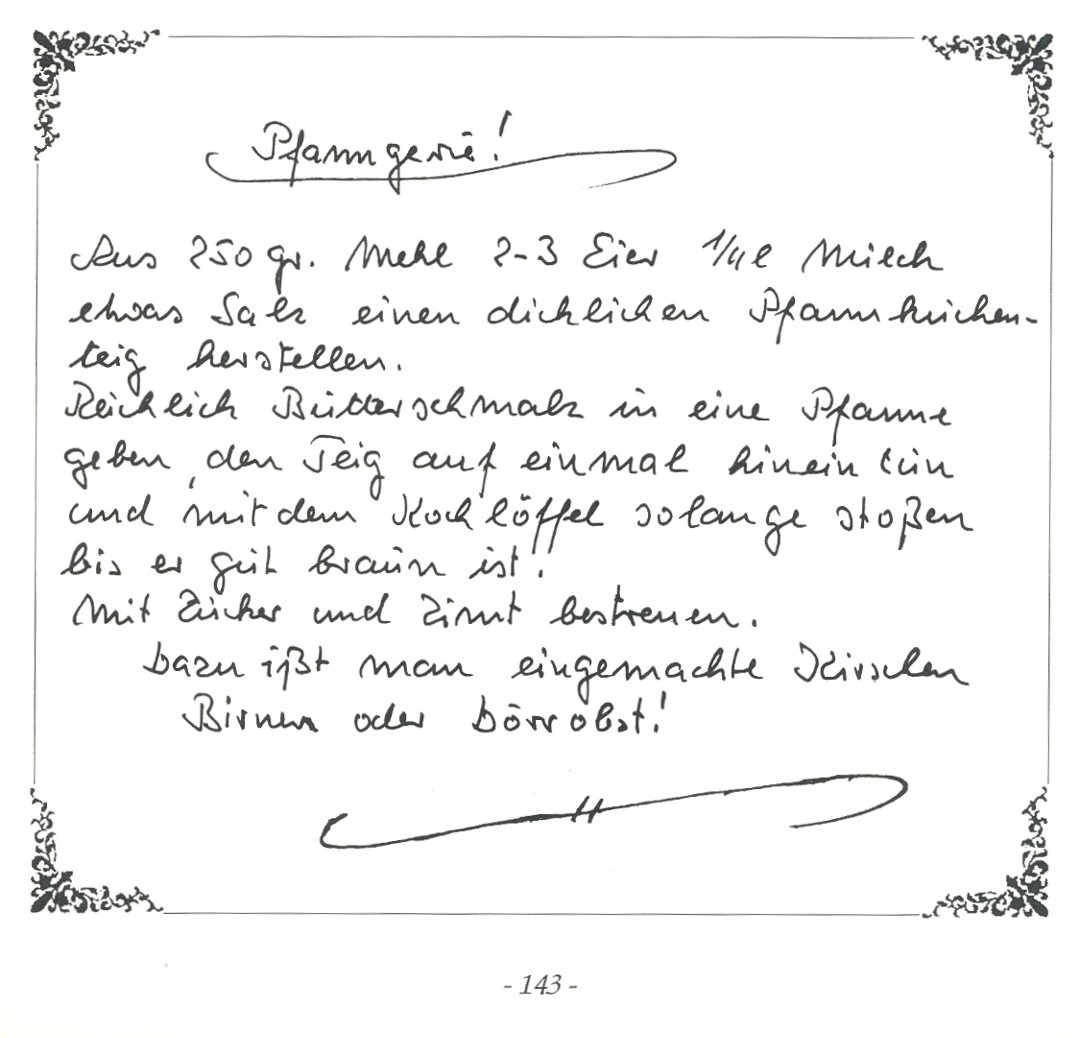 Pfanngerie!
Aus 250 gr. Mehl 2-3 Eier 1/4 l Milch
etwas Salz einen dicklichen Pfannkuchen-
teig herstellen.
Reichlich Butterschmalz in eine Pfanne
geben, den Teig auf einmal hinein tun
und mit dem Kochlöffel solange stoßen
bis er gut braun ist!
Mit Zucker und Zimt bestreuen.
Dazu ißt man eingemachte Kirschen
Birnen oder Dörrobst!
- 143 -